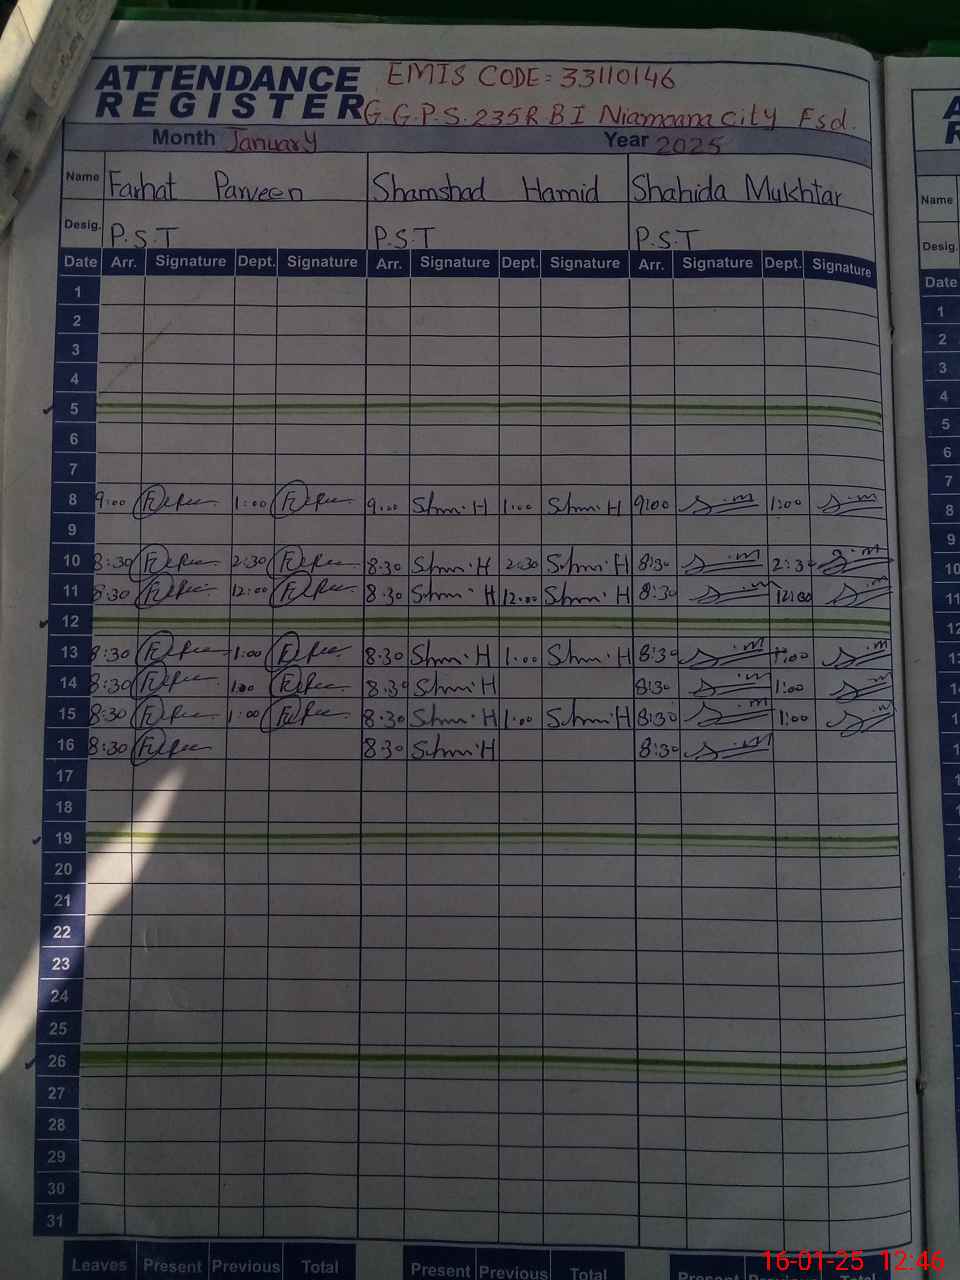 ATTENDANCE REGISTER
EMIS CODE = 33110146
G.G.P.S. 235 R B I Niamoana City Fsd.
Month January Year 2025
Name Farhat Parveen Shamshad Hamid Shahida Mukhtar
Desig. P.S.T P.S.T P.S.T
Date Arr. Signature Dept. Signature Arr. Signature Dept. Signature Arr. Signature Dept. Signature
1
2
3
4
5
6
7
8 9:00 1:00 9:00 Shm.H 1:00 Shm.H 9:00 S.m 1:00 S.m
9
10 8:30 2:30 8:30 Shm.H 2:30 Shm.H 8:30 S.m 2:30 S.m
11 8:30 12:00 8:30 Shm.H 12:00 Shm.H 8:30 S.m 12:00 S.m
12
13 8:30 1:00 8:30 Shm.H 1:00 Shm.H 8:30 S.m 1:00 S.m
14 8:30 1:00 8:30 Shm.H 8:30 S.m 1:00 S.m
15 8:30 1:00 8:30 Shm.H 1:00 Shm.H 8:30 S.m 1:00 S.m
16 8:30 8:30 Shm.H 8:30 S.m
17
18
19
20
21
22
23
24
25
26
27
28
29
30
31
Leaves Present Previous Total Present Previous Total Present Total
Name
Desig.
Date
1
2
3
4
5
6
7
8
9
10
11
12
16-01-25 12:46